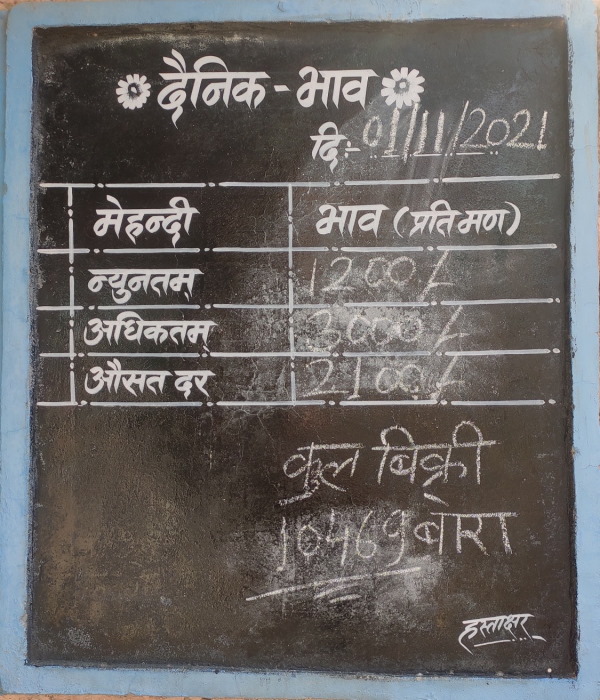 दैनिक - भाव
दि:- 01/11/2021
मेहन्दी भाव (प्रति मण)
न्युनतम् 1200/-
अधिकतम् 3000/-
औसत दर 2100/-
कुल बिक्री
10469 बोरा
हस्ताक्षर